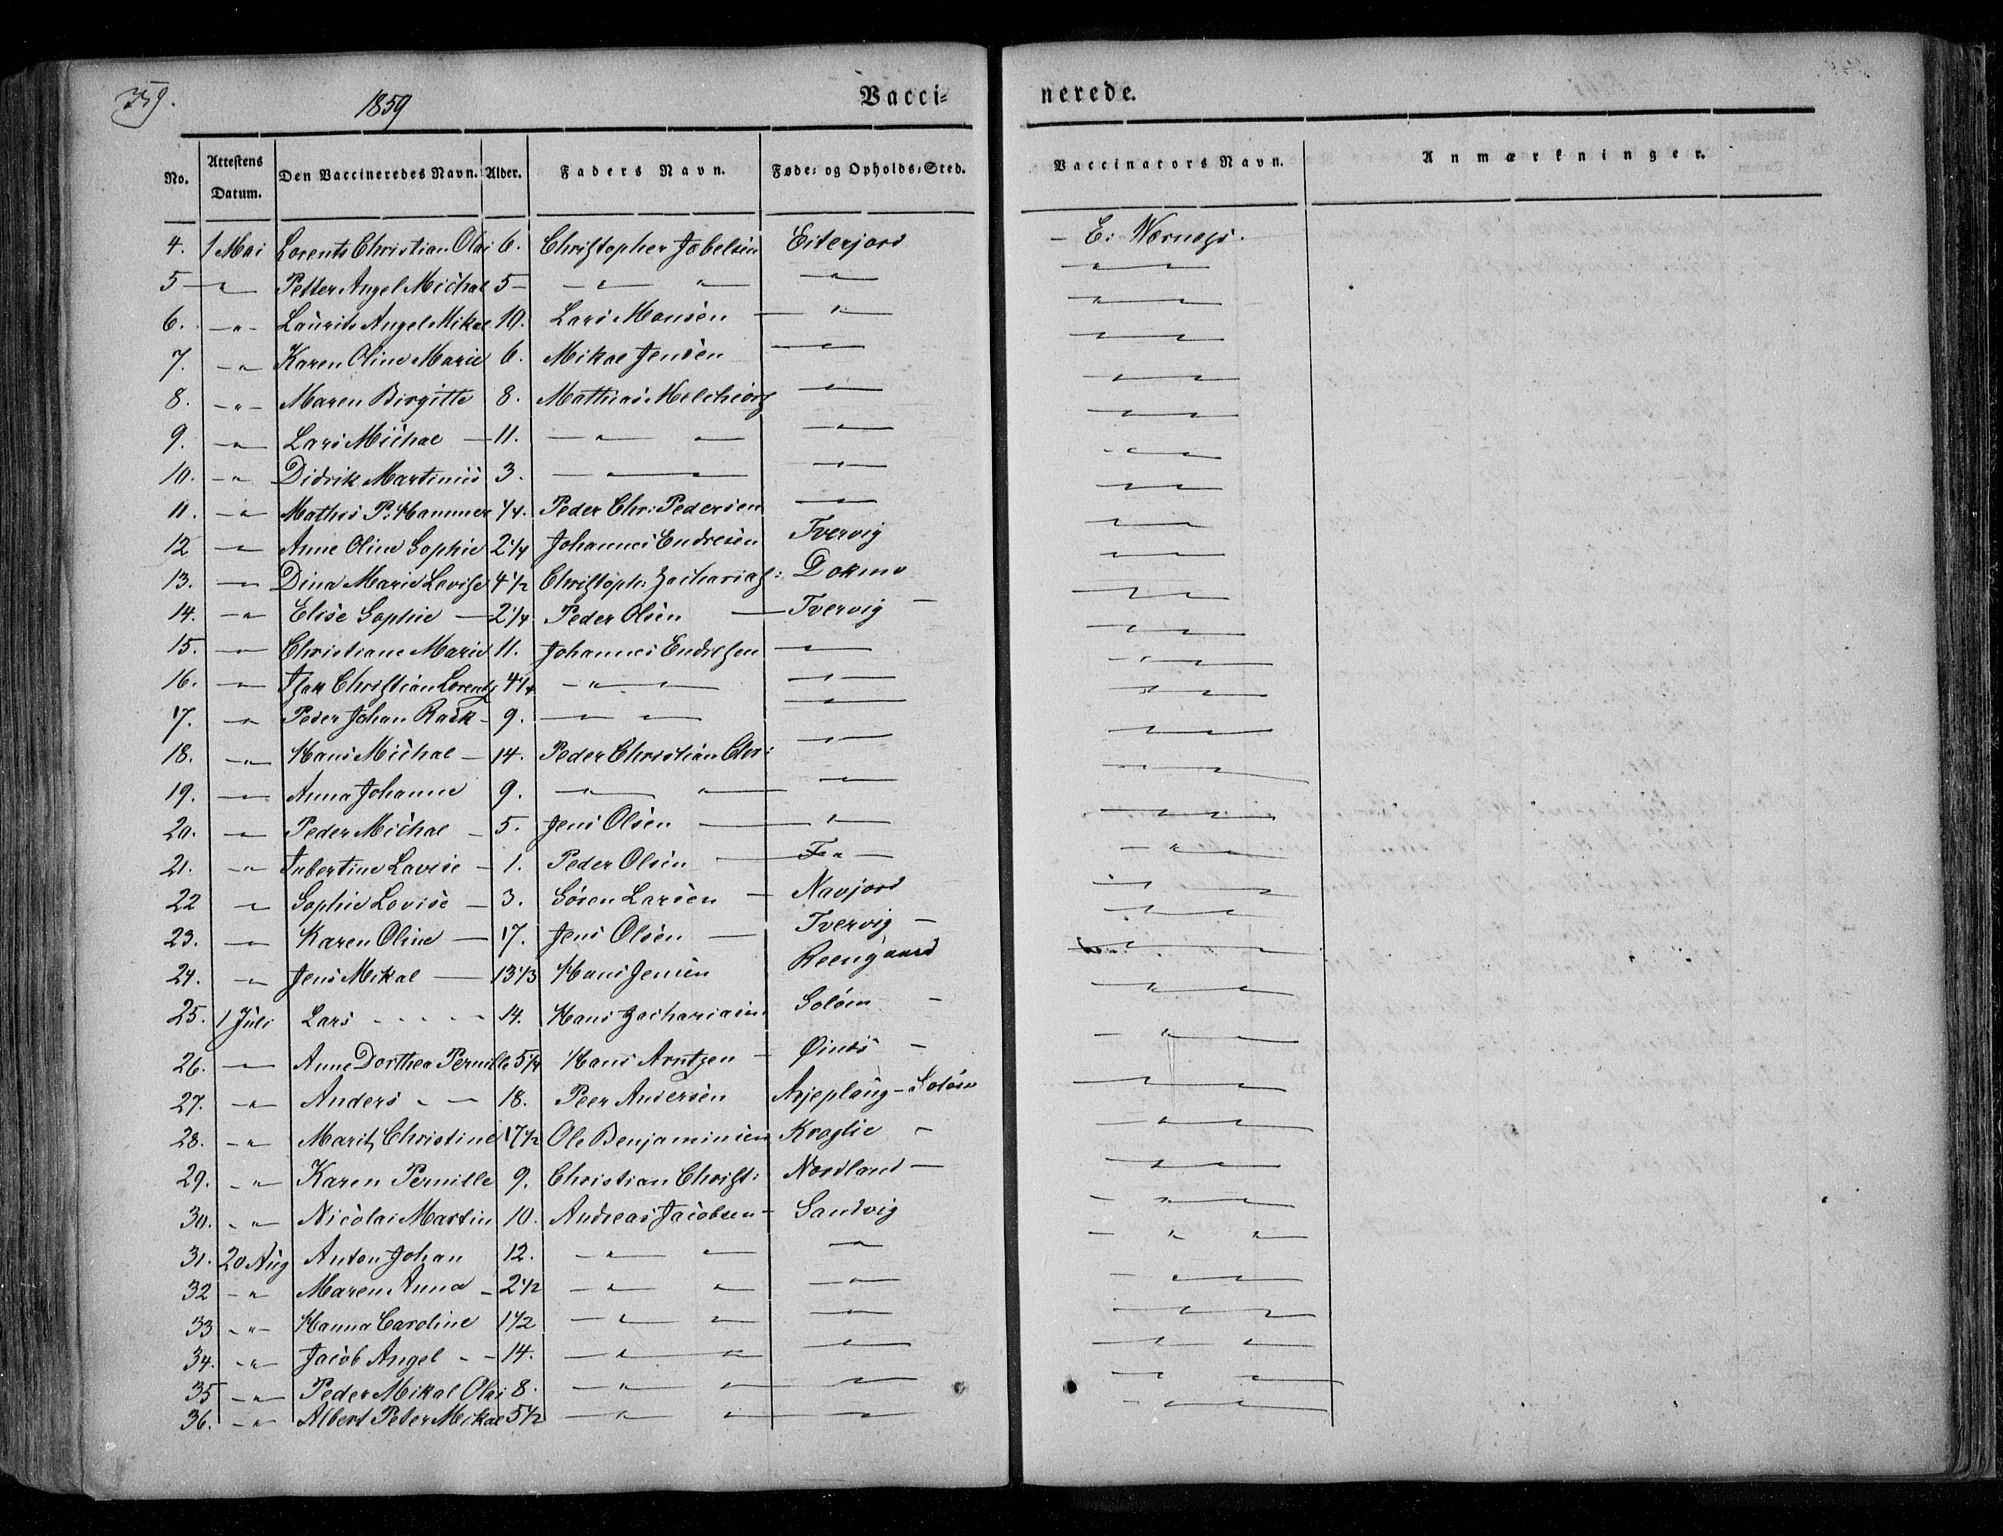 359.
1859
Vacci= nerede.
No. Attestens Datum. Den Vaccineredes Navn. Alder. Faders Navn. Føde= og Opholds=Sted. Vaccinators Navn. Anmærkninger.
4. 1 Mai Lorents Christian Olai 6. Christopher Jobelsen Eiterjord - E:
5 - " - Petter Angel Michal 5 - " " - " - - " - " -
6. - " - Laurits Angel Mikal 10. Lars Monsen - " - - " - " -
7. - " - Karen Oline Marie 6. Mikal Jensen - " - - " - " -
8. - " - Maren Birgitte 8. Mathias Melchiors - " - - " - " -
9. - " - Lars Michal - 11. - " - " - - " - - " - " -
10. - " - Didrik Martinus 3. - " - " - - " - - " - " -
11. - " - Mathis P. Hammer 1/4. Peder Chr: Pedersen - " - - " - " -
12 - " - Anne Oline Sophie 2 1/4 Johannes Endresen Tvervig - " - " -
13. - " - Dina Marie Lovise 4 1/2 Christoph: Zacharias: Dokmo - " - " -
14. - " - Elise Sophie - 2 1/4 Peder Olsen - Tvervig - - " - " -
15. - " - Christiane Marie 11. Johannes Endresen - " - - " - " -
16. - " - Isak Christian Lorents 4 1/4 - " - " - - " - - " - " -
17. - " - Peder Johan Rask - 9. - " - " - - " - - " - " -
18. - " - Hans Michal - 14. Peder Christian Chr: - " - - " - " -
19. - " - Anna Johanne 9. - " - " - - " - - " - " -
20. - " - Peder Michal - 5. Jens Olsen - - " - - " - " -
21. - " - Lovise - 1. Peder Olsen - - " - - " - " -
22 - " - Sophie Lovise - 3. Sören Larsen - Navjord - " - " -
23. - " - Karen Oline - 17. Jens Olsen - Tvervig - - " - " -
24. - " - Jens Mikal - 13 1/3 Hans Jensen Reengaard - " - " -
25. 1 Juli Lars - - - - - 14. Hans Zachariasen Soløen - - " - " -
26. - " - Anne Dorthea Pernille 5 1/4 Hans Arntzen - Øines - - " - " -
27. - " - Anders - - 18. Peer Andersen Arjeploug - Soløen - " - " -
28. - " - Marit Christine 17 1/2 Ole Benjaminsen Kraglie - - " - " -
29. - " - Karen Pernille 9. Christian Christ: Nordland - - " - " -
30. - " - Nicolai Martin 10. Andreas Jacobsen - Sandvig - " - " -
31. 20 Aug Anton Johan 12. - " - " - - " - - " - " -
32 - " - Maren Anna - 2 1/2 - " - " - - " - - " - " -
33 - " - Hanna Caroline 1 1/2 - " - " - - " - - " - " -
34. - " - Jacob Angel - - 14. - " - " - - " - - " - " -
35 - " - Peder Mikal Olai 8. - " - " - - " - - " - " -
36. - " - Albert Peter Mikal 5 1/2 - " - " - - " - - " - " -